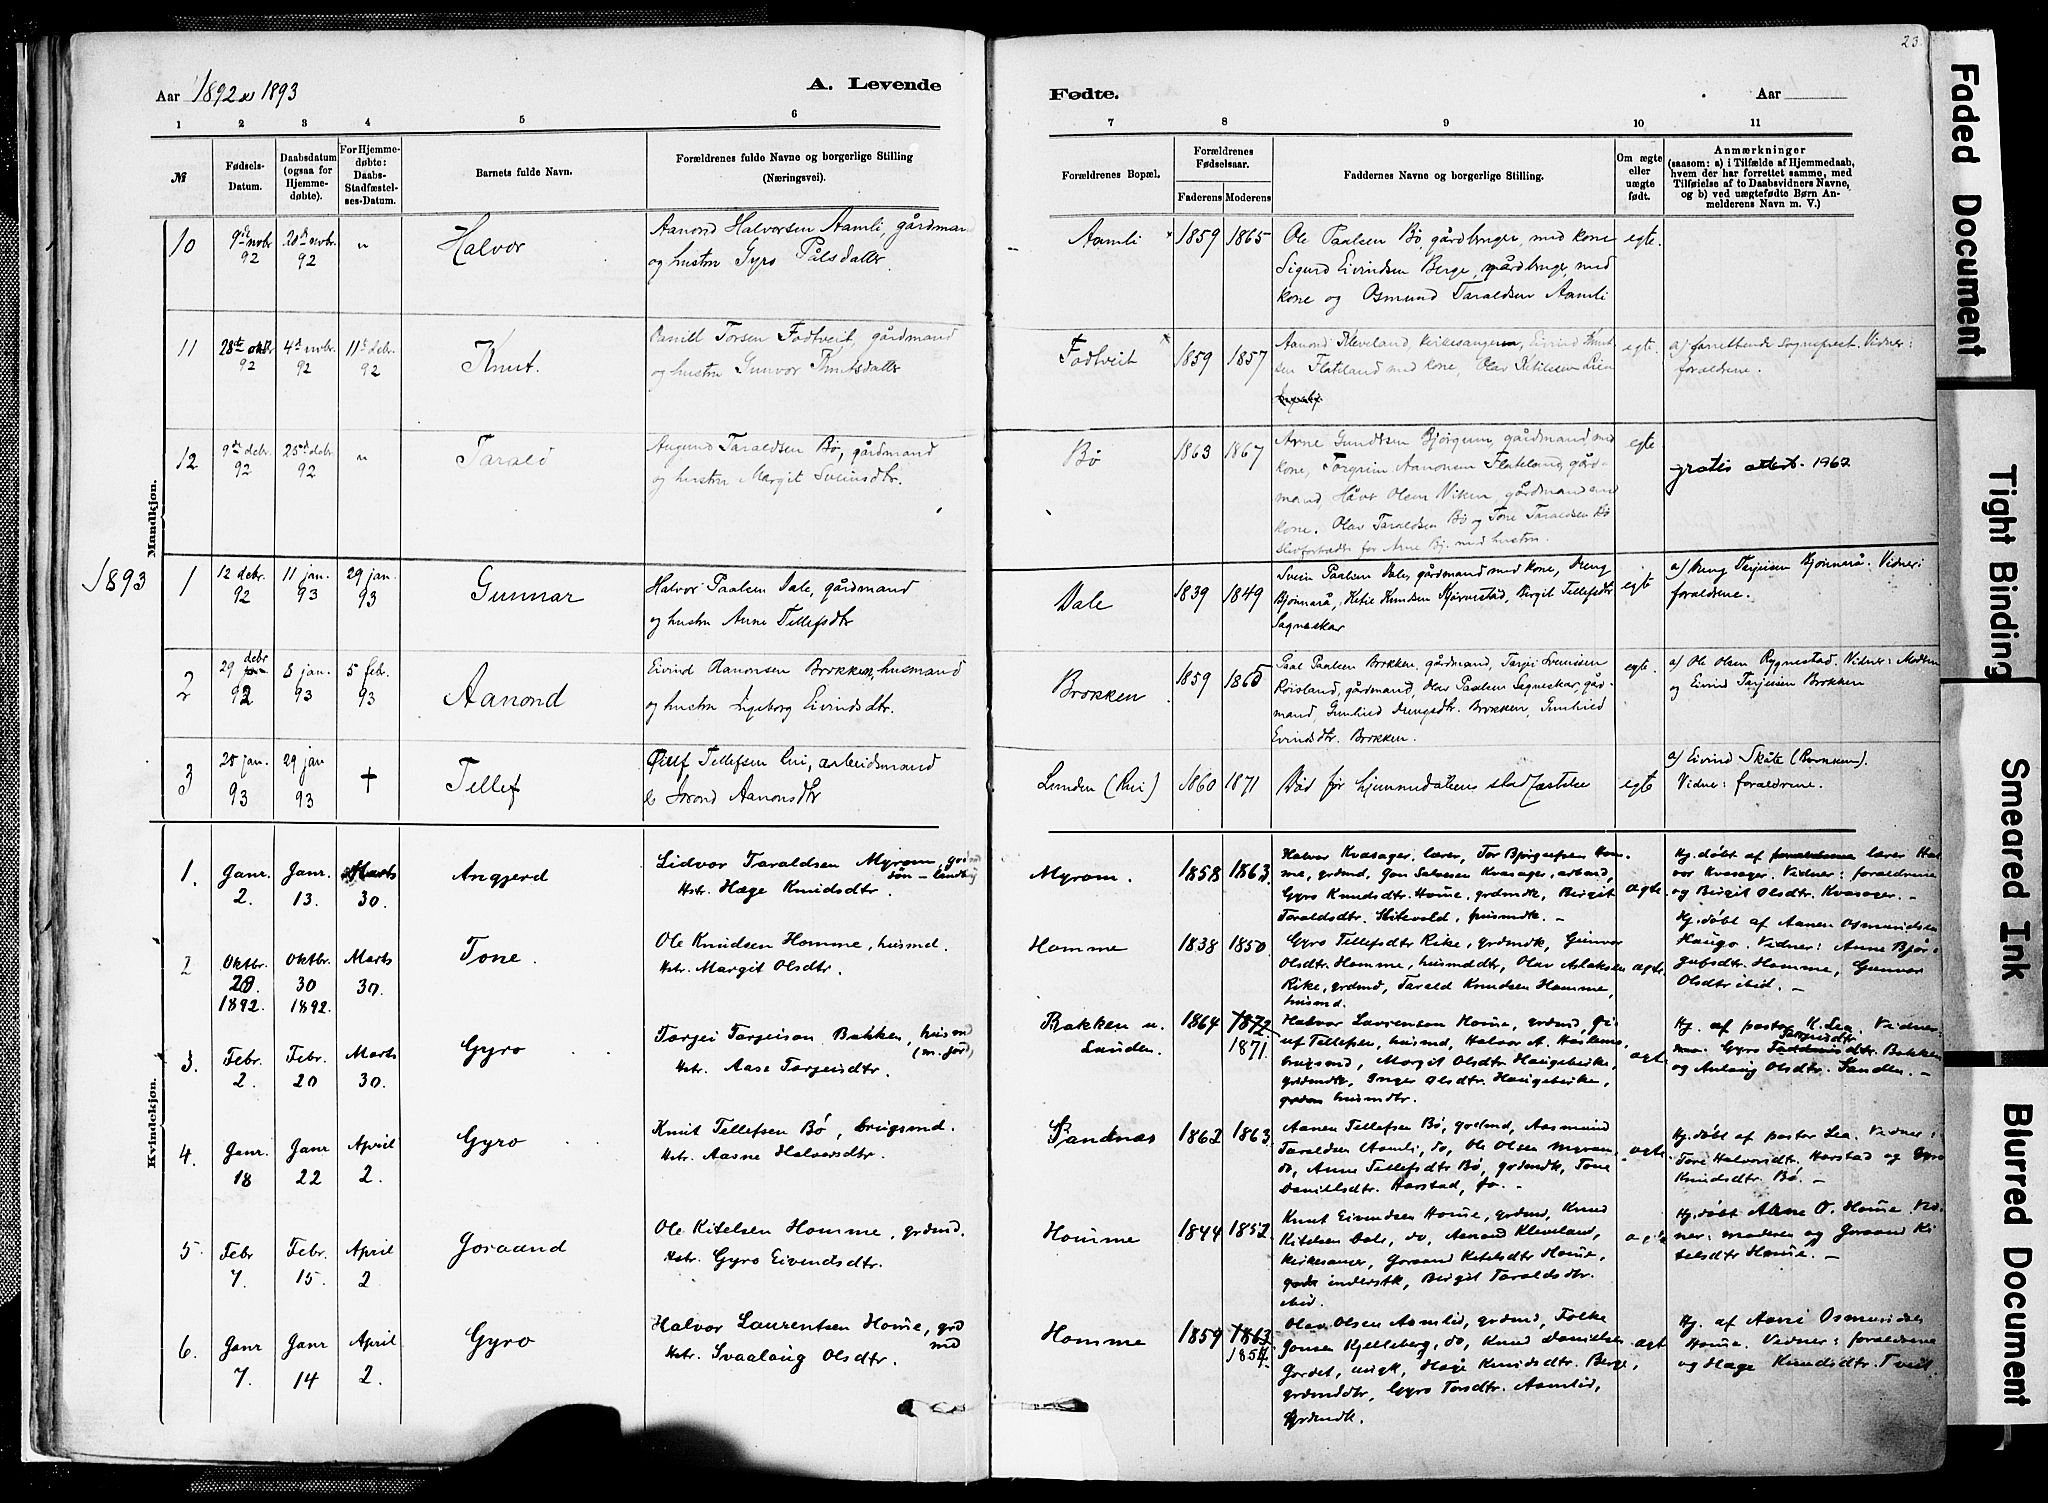 Aar 1892 og 1893
A. Levende
Fødte.
Aar
23
1 2 3 4 5 6 7 8 9 10 11
№
Fødsels-Datum.
Daabsdatum (ogsaa for Hjemme-døbte).
For Hjemme-døbte: Daabs-Stadfæstel-ses-Datum.
Barnets fulde Navn.
Forældrenes fulde Navne og borgerlige Stilling (Næringsvei).
Forældrenes Bopæl.
Forældrenes Fødselsaar.
Faderens Moderens
Faddernes Navne og borgerlige Stilling.
Om ægte eller uægte født.
Anmærkninger
(saasom: a) i Tilfælde af Hjemmedaab, hvem der har forrettet samme, med Tilføielse af to Daabsvidners Navne, og b) ved uægtefødte Børn An-melderens Navn m. V.)
Mandkjøn.
10
9de novbr. 92
20de novbr. 92
"
Halvor
Aanond Halvorsen Aamli, gårdmand
og hustru Gyro Pålsdatter
Aamli
1859 1865
Ole Paalsen Bø, gårdbruger, med kone
Sigurd Eivindsen Berge, gårdbruger, med
kone og Osmund Taraldsen Aamli
egte.
11
28de oktbr 92
4de novbr. 92
11te debr. 92
Knut.
Daniel Torsen Fodtveit, gårdmand
og hustru Gunvor Knutsdatter
Fodtveit
1859 1857
Aanond Kleveland, kirkesanger, Eivind Knut-
sen Flateland med kone, Olav Ketilsen Lien
egte.
a) forrettende sogneprest. Vidner:
forældrene.
12
9de debr. 92
25de debr. 92
"
Tarald
Augund Taraldsen Bø, gårdmand
og hustru Margit Sveinsdtr.
Bø
1863 1867
Arne Gundersen Bjørgum, gårdmand med
kone, Torgrim Aanonsen Flateland, gård-
mand, Håvor Olsen Viken, gårdmand med
kone. Olav Taraldsen Bø og Tone Taraldsen Bø
for Arne Bj. med hustru
egte
gratis attest. 1962
1893
1
12 debr. 92
11 jan. 93
29 jan. 93
Gunnar
Halvor Paalsen Dale, gårdmand
og hustru Anne Tellefsdtr
Dale
1839 1849
Svein Paalsen Dale, gårdmand med kone, Dreng
Bjønnarå, Ketil Knudsen Kjørvestad, Birgit Tellefsdtr
Sagneskar
egte
a) Dreng Terjeisen Bjønnarå. Vidner:
forældrene.
2
29 debr 92
8 jan. 93
5 feb. 93
Aanond
Eivind Aanonsen Brokken, husmand
og hustru Ingeborg Eivindsdtr.
Brokken
1859 1865
Paal Paalsen Brokken, gårdmand, Tarjei Sveinsen
Roisland, gårdmand, Olav Paalsen Sagneskar, gård-
mand, Gunhild Drengsdtr. Brokken, Gunhild
Eivindsdtr. Brokken.
egte.
a) Ole Olsen Rygnestad. Vidner: Moderen
og Eivind Terjeisen Brokken
3
25 jan. 93
29 jan 93
†
Tellef
Øiulf Tellefsen Lien, arbeidsmand
& Jorond Aanonsdtr
Lunden (Rui)
1860 1871
Død før hjemmedåbens stadfæstelse
egte
a) Eivind Skåte (Bornken).
Vidner: forældrene.
Kvindekjøn.
1.
Janr. 2.
Janr. 13.
Marts 30.
Angjerd
Lidvor Taraldsen Myrom, grdmd
søn – landbrug
Hstr. Hæge Knudsdtr.
Myrom.
1858 1863.
Halvor Kvasager, lærer, Tor Bjørgulfsen Hom-
me, grdmd, Jon Salvesen Kvasager, arbmd,
Gyro Knudsdtr. Homme, grdmdk, Birgit
Taraldsdtr. Skitevold, husmdk. –
ægte.
Hj. døbt af lærer Hal-
vor Kvasager. Vidner: forældrene
og Birgit Olsdtr. Kvasager. –
2
Oktbr. 20. 1892.
Oktbr. 30 1892.
Marts 30.
Tone.
Ole Knudsen Homme, husmd.
Hstr. Margit Olsdtr.
Homme
1838 1850.
Gyro Tellefsdtr Rike, grdmdk, Gunvor
Olsdtr. Homme, husmddtr, Olav Aslaksen
Rike, grdmd, Tarald Knudsen Homme,
husmd.
ægte
Hj. døbt af Aanen Osmundsen
Haugo. Vidner: Anne Bjør-
gufsdtr. Homme, Gunvor
Olsdtr ibid. –
3.
Febr. 2.
Febr. 20
Marts 30.
Gyro
Torjei Torjeison Bakken, husmd
(m. jord)
Hstr. Aase Torjeisdtr.
Bakken u.
Sanden.
1864 1872 1871.
Halvor Laurensen Homme, grdmd, Øi-
uf Tellefsen, husmd, Halvor A. Haslemo,
brugsmd, Margit Olsdtr Haugebirke,
grdmdk, Inger Olsdtr. Haugebirke,
husmdtr.
ægte
Hj. af pastor K. Lea. Vidner:
Gyro Torjeisdtr. Bakken
og Anlaug Olsdtr. Sanden. –
4.
Janr. 18
Janr 22
April 2.
Gyro
Knut Tellefsen Bø, brugsmd.
Hstr. Aasne Halvorsdtr.
Sandnæs
1862 1863.
Aanen Tellefsen Bø, grdmd, Aasmund
Taraldsen Aamli, do, Ole Olsen Myrom,
do, Anne Tellefsdtr Bø, grdmdk, Tone
Danielsdtr. Harstad, do. –
ægte.
Hj. døbt af pastor Lea. Vidner:
Tore Halvorsdtr. Harstad og Gyro
Knudsdtr. Bø. –
5.
Febr 7.
Febr. 15.
April 2
Goraand
Ole Kitelsen Homme, grdmd.
Hstr. Gyro Eivendsdtr.
Homme
1844 1852.
Knut Eivendsen Homme, grdmd, Knud
Kitelsen Dale, do, Aanond Kleveland,
kirkesanger, Goraand Ketelsdtr Homme,
inderstk, Birgit Taraldsdtr.
ibid.
ægte
Hj. døbt Arne O. Homme Vid-
ner: moderen og Goraand Ki-
telsdtr Homme. –
6.
Janr 7.
Janr 14
April 2.
Gyro
Halvor Laurentsen Homme, grd
md
Hstr. Svaalaug Olsdtr.
Homme
1859 1863 1854.
Olav Olsen Aamlid, grdmd, Folke
Jonsen Kjelleberg, do, Knud Danielsen
Jordet, ungk, Hæge Knudsdtr. Berge,
grdmddtr, Gyro Torsdtr. Aamlid,
grdmdk.
ægt
Hj. af Aani Osmundsen
Homme. Vidner: forældrene
og Hæge Knudsdtr. Tveit
Faded Document
Tight Binding
Smeared Ink
Blurred Document